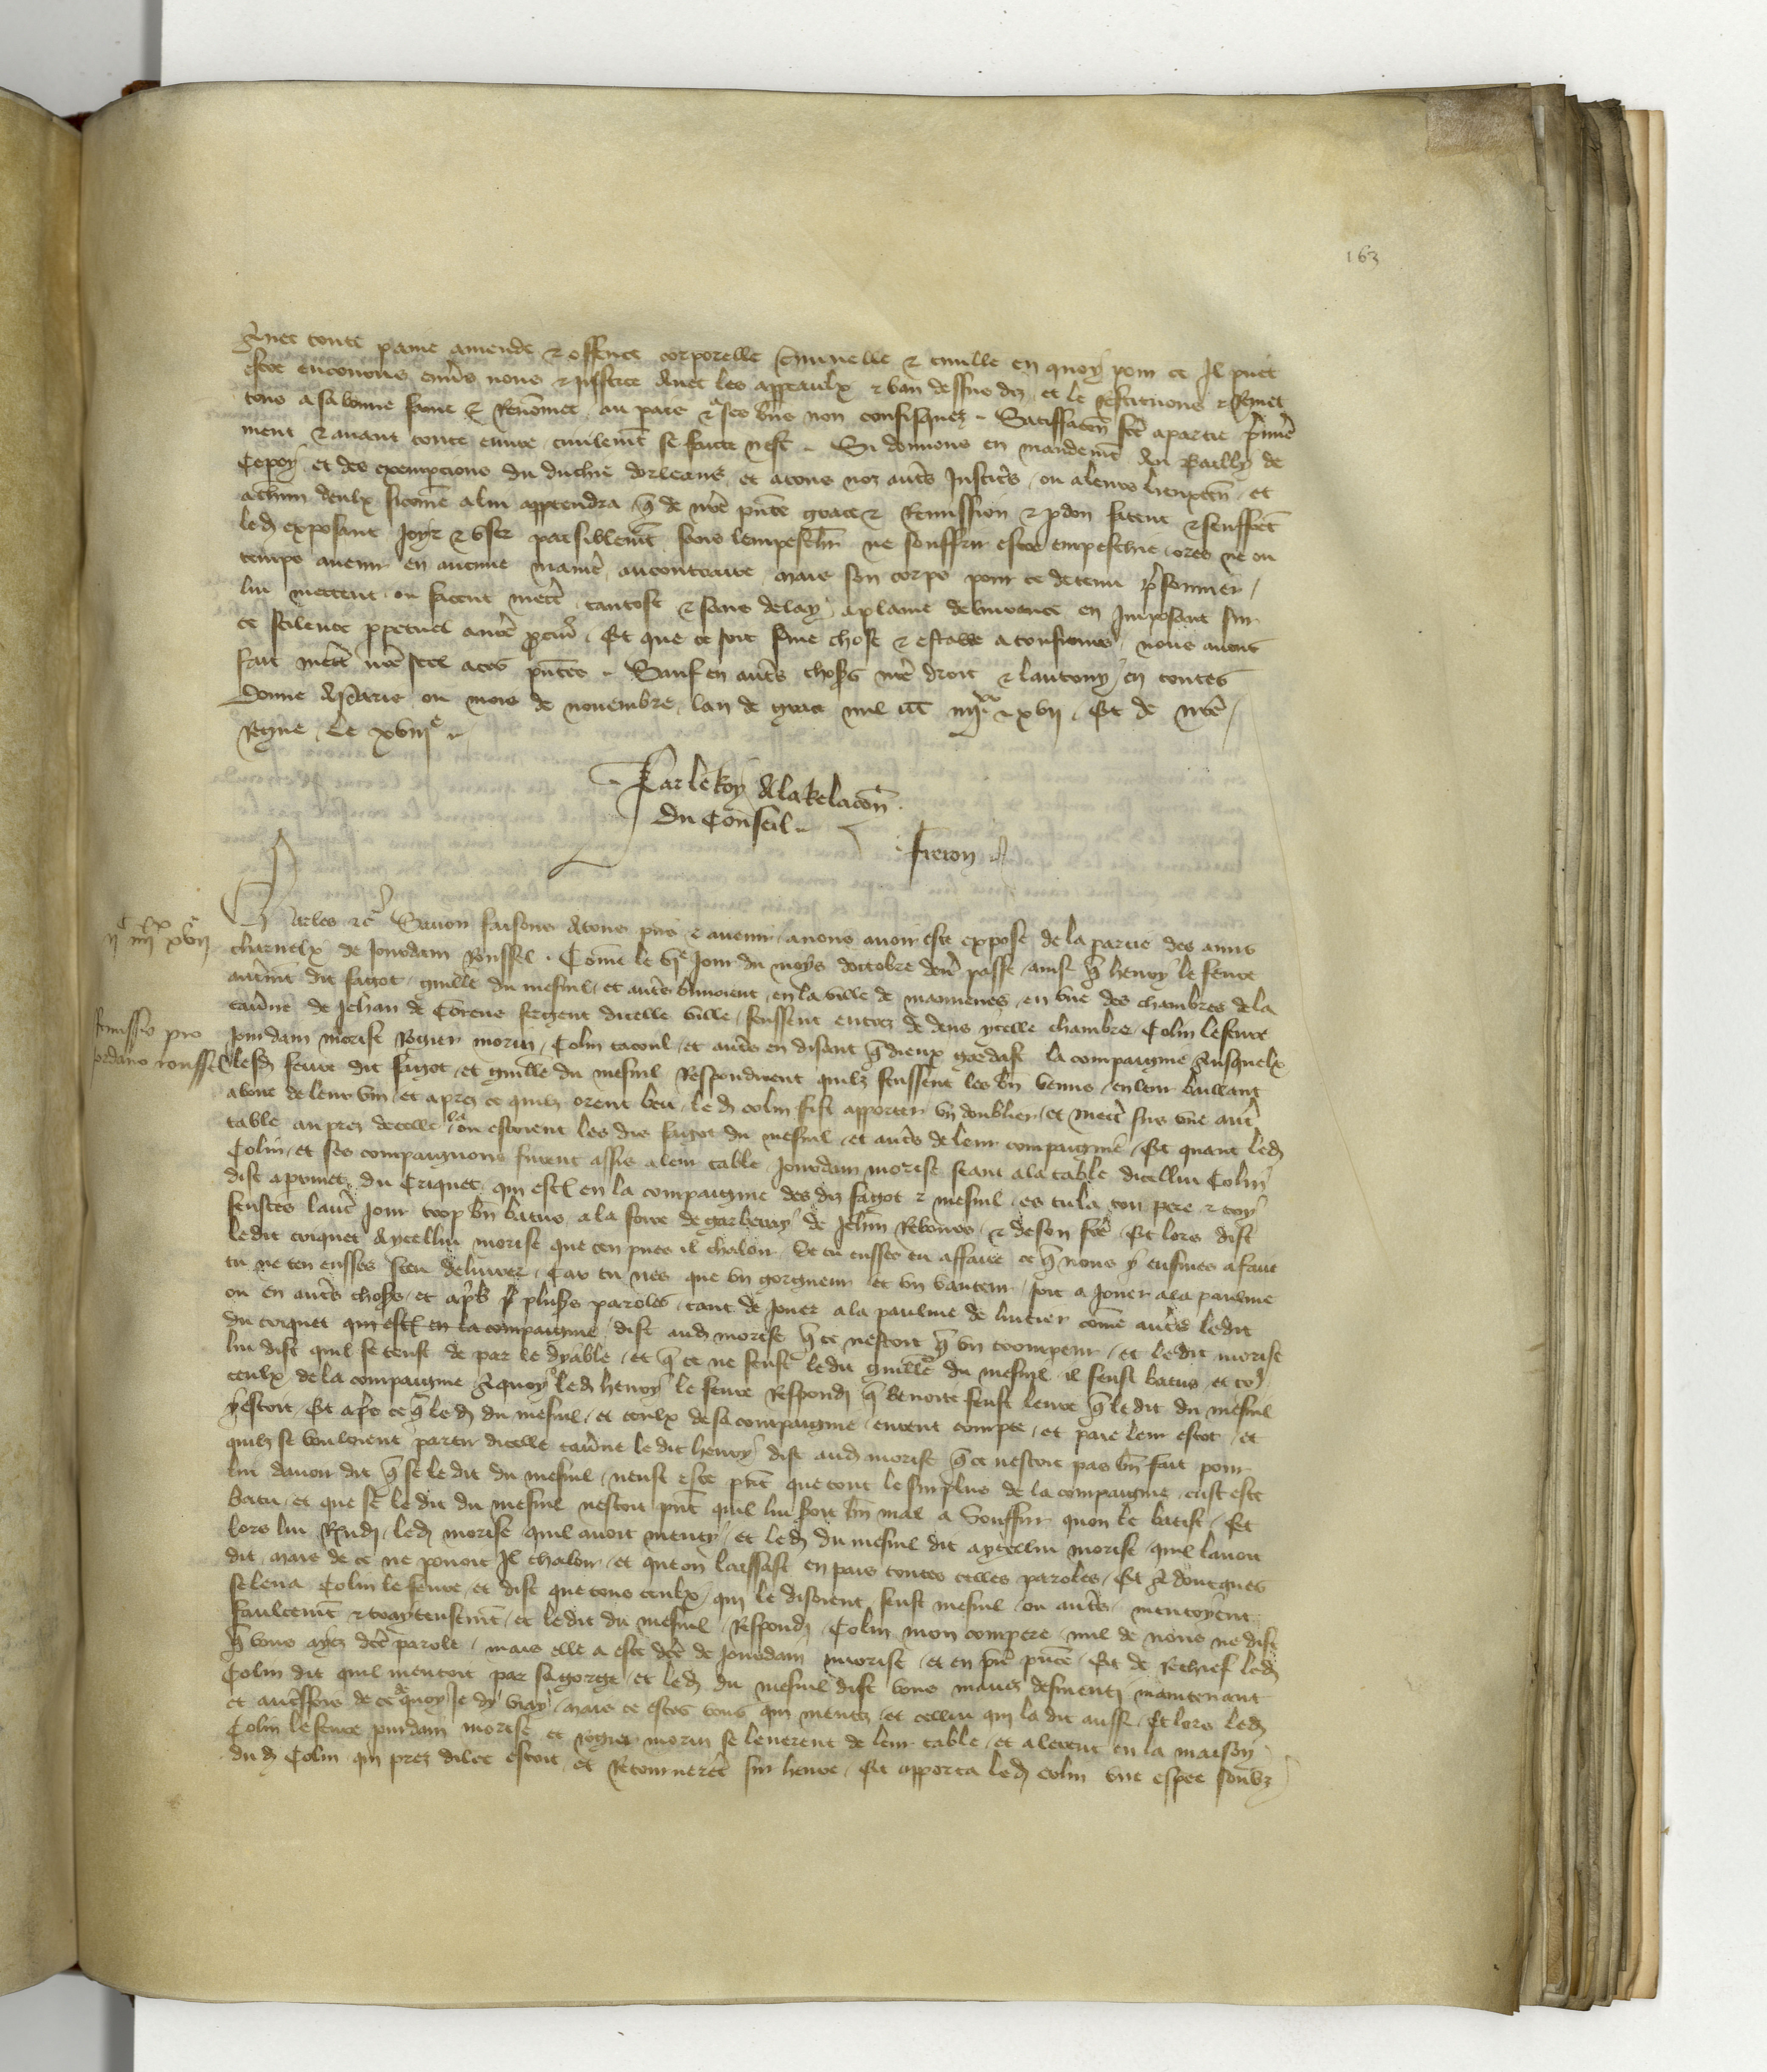 163
avec toute paine amende & offence corporelle cminelle & civille en quoy pour ce Il puet
estre encouruz envs nous & justice Avec les appeaulx & ban dessus diz et le restituons & remet
tons a sa bonne fame & Renomee au pais & a ses bns non confisquez . Satisfacon fcte a partie pmie
ment & avant toute euvre civilemt se faicte nest . Si donnons en mandemt Au Bailly de
Cepoy et des exempcions du duchie dorleans et a tous noz autrs Justicrs ou a leurs lieuxten et
a chun deulx sicome a lui apptendra q de nre pnte grace & Remission & pdon facent & seuffret
led exposant Joyr & user paisiblemt sans lempeschr ne souffrir estre empeschie ores ne ou
temps avenir en aucune manie au contraire mais son corps pour ce detenu prsonnier
lui mettent ou facent mett tantost & sans delay a plaine delivrance en Imposant sur
ce scilence ppetuel a nre pcur . Et que ce soit fme chose & estable a tousjours nous avons
fait mett nre seel a ces pntes . Sauf en autrs choses nre droit & lautruy en toutes
Donne A Paris ou mois de novembre lan de grace mil ccc iiiixx & xvii . Et de nre
Regne le xviiie
Par le Roy A la Relacon
du Conseil
Freron
iic iiiixx xvii
Charles &c Savoir faisons A tous pns & avenir a nous avoir este expose de la partie des amis
charnelx de Jourdain Roussel . Come le vie Jour du moys doctobre derr passe ainsi q henry le fevre
autremt dit fagot guille du mesnil et autrs buvoient en la ville de en une des chambres de la
Remissio pro
Jordano roussel
tavne de Jehan de sergent dicelle ville feussent entrez dedens ycelle chambre Colin le fevre
Jourdain morise Rogier morin Colin tacoul et autrs en disant q dieux gardast la compaignie Ausquelx
lesd fevre dit fagot et guille du mesnil Respondirent quilz feussent les bn venus en leur baillant
a boire de leur vin et aprez ce quilz orent beu led colin fist apporter un doublier et mett sus une autr
table au prez dicelle la ou estoient les dis fagot du mesnil et autrs de leur compaignie Et quant led
Colin et ses compaignons furent assis a leur table Jourdain morise seant a la table dicellui Colin
dist a du Criquet qui est en la compaignie des diz fagot & mesnil es tu la ton pere & toy
feustes lautr Jour trop bn batus a la foire de garberay de Jehan & de son fre Et lors dist
ledit criquet A ycellui morise que ten puet il chaloir Se tu eusses eu affaire ce q nous y eusmes a faire
tu ne ten eusses sceu delivrer Car tu nes que un et un vanteur soit a Jouer a la paulme
ou en autrs choses et aprs pluses paroles tant de Jouer a la paulme de luicier come autrs ledit
du criquet qui est en la compaignie dist aud morise q ce nestoit q un trompeur et ledit morise
lui dist quil se teust de par le dyable et q se ne feust ledit guille du mesnil il feust batus et to
ceulx de la compaignie A quoy led henry le fevre Respondi q feust leure q ledit du mesnil
y estoit Et aprs ce q led du mesnil et ceulx de sa compaignie eurent compte et paie leur escot et
quilz se vouloient partir dicelle tavne le dit henry dist aud morise q ce nestoit pas bn fait pour
lui davoir dit q se le dit du mesnil neust este pnt que tout le surplus de la compaignie eust este
batu et que se le dit du mesnil nestoit pnt quil lui feroit bn mal a Souffrir quon le batist Et
lors lui Rndi led morise quil avoit menty et led du mesnil dit a ycellui morise quil lavoit
dit mais de ce ne povoit Il chaloir et que on laissast en pais toutes celles paroles Et Adoncques
se leva Colin le fevre et dist que tous ceulx qui le disoient feust mesnil ou autrs mentoyent
faulcemt & traytreusemt et ledit du mesnil Respondi Colin mon compere nul de nous ne dist
q vous aiez dcte parole mais elle a este dcte de Jourdain morise et en vre pnce Et de Rechief led
Colin dit quil mentoit par sa gorge et led du mesnil dist vous mavez desmenti maintenant
et autresfois de ce de quoy Je dy vray mais ce estes vous qui mentez et cellui qui la dit aussi Et lors led
Colin le fevre jourdain morise et rogier morin se leverent de leur table et alerent en la maison
dud Colin qui prez dilec estoit et Retournerent sur heure Et apporta led colin une espee soubz